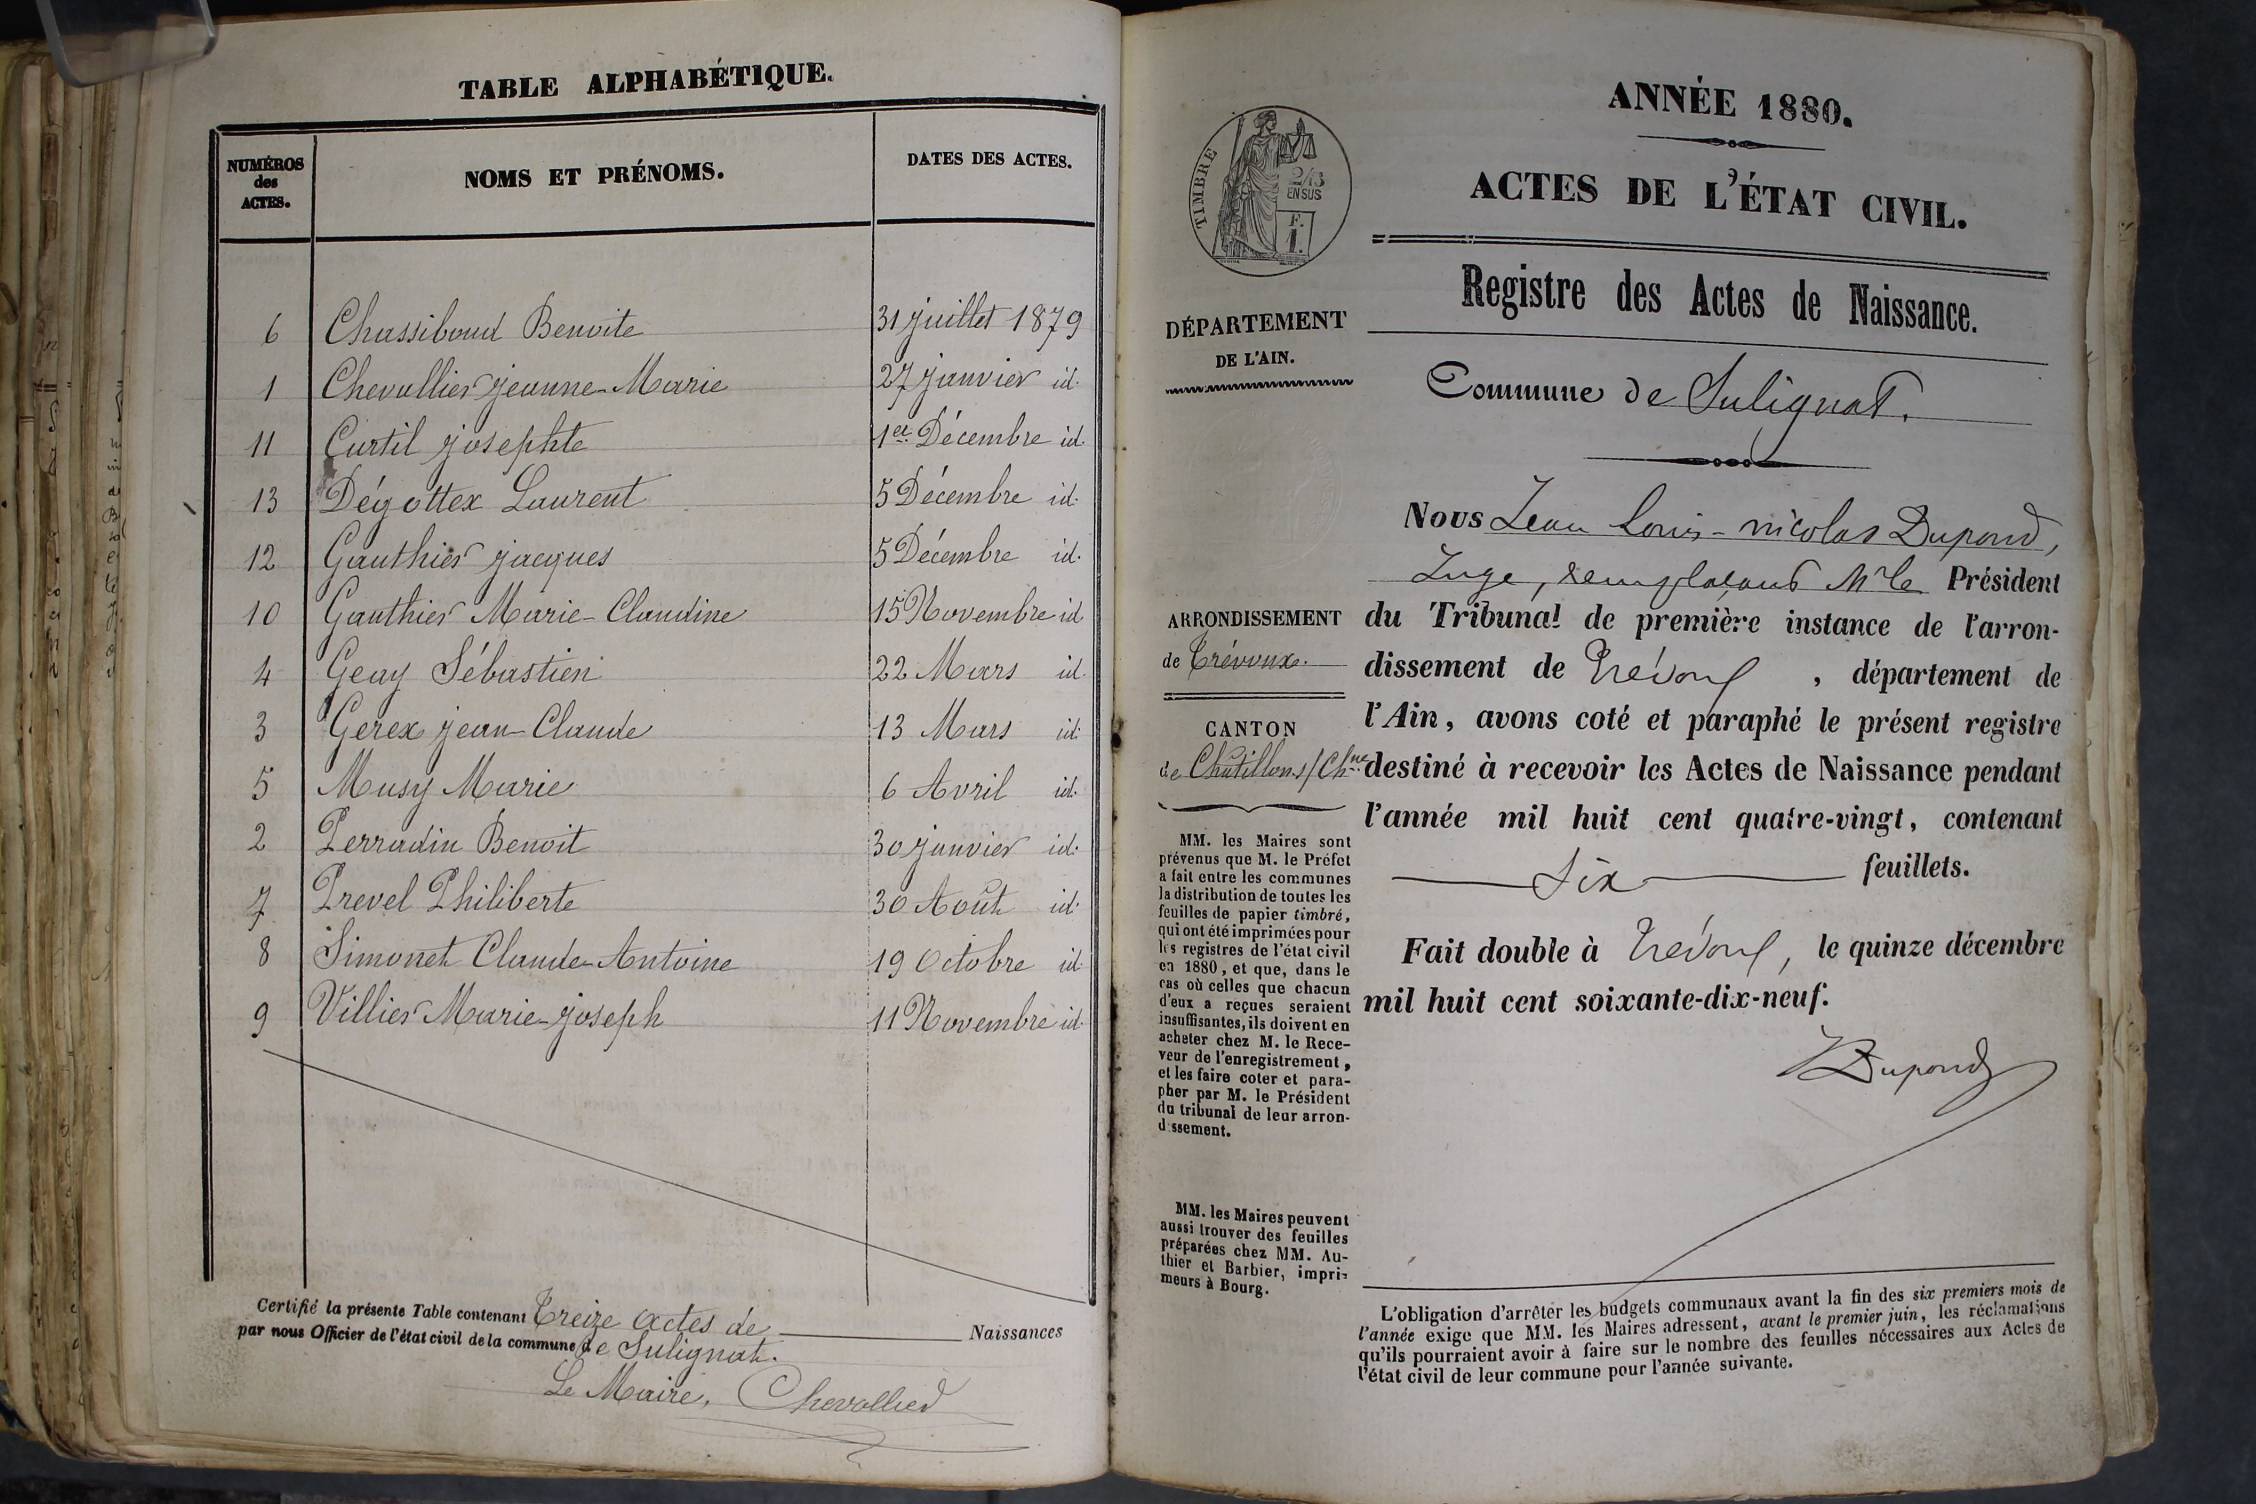 TABLE ALPHABÉTIQUE.
NUMÉROS des ACTES. NOMS ET PRÉNOMS. DATES DES ACTES.
6 Chassiboud Benoite 31 juillet 1879
1 Chevallier jeanne-Marie 27 janvier id.
11 Curtil josephte 1er Décembre id.
13 Dégottex Laurent 5 Décembre id.
12 Gauthier jacques 5 Décembre id.
10 Gauthier Marie-Claudine 15 Novembre id.
4 Geay Sébastien 22 Mars id.
3 Gerex jean-Claude 13 Mars id.
5 Musy Marie 6 Avril id.
2 Perradin Benoit 30 janvier id.
7 Prevel Philiberte 30 Août id.
8 Simonet Claude-Antoine 19 Octobre id.
9 Villier Marie-joseph 11 Novembre id.
Certifié la présente Table contenant Treize actes de Naissances
par nous Officier de l'état civil de la commune de Sulignat.
Le Maire, Chevallier
ANNÉE 1880.
ACTES DE L'ÉTAT CIVIL.
Registre des Actes de Naissance.
TIMBRE
2/10
EN SUS
F.
1.
DÉPARTEMENT
DE L'AIN.
ARRONDISSEMENT
de Trévoux.
CANTON
de Châtillon s/ Chne
MM. les Maires sont
prévenus que M. le Préfet
a fait entre les communes
la distribution de toutes les
feuilles de papier timbré,
qui ont été imprimées pour
les registres de l'état civil
en 1880, et que, dans le
cas où celles que chacun
d'eux a reçues seraient
insuffisantes, ils doivent en
acheter chez M. le Rece-
veur de l'enregistrement,
et les faire coter et para-
pher par M. le Président
du tribunal de leur arron-
dissement.
MM. les Maires peuvent
aussi trouver des feuilles
préparées chez MM. Au-
thier et Barbier, impri-
meurs à Bourg.
Commune de Sulignat.
Nous Jean Louis-nicolas Dupond,
Juge, remplaçant Mr le Président
du Tribunal de première instance de l'arron-
dissement de Trévoux, département de
l'Ain, avons coté et paraphé le présent registre
destiné à recevoir les Actes de Naissance pendant
l'année mil huit cent quatre-vingt, contenant
Six feuillets.
Fait double à Trévoux, le quinze décembre
mil huit cent soixante-dix-neuf.
Dupond
L'obligation d'arrêter les budgets communaux avant la fin des six premiers mois de
l'année exige que MM. les Maires adressent, avant le premier juin, les réclamations
qu'ils pourraient avoir à faire sur le nombre des feuilles nécessaires aux Actes de
l'état civil de leur commune pour l'année suivante.